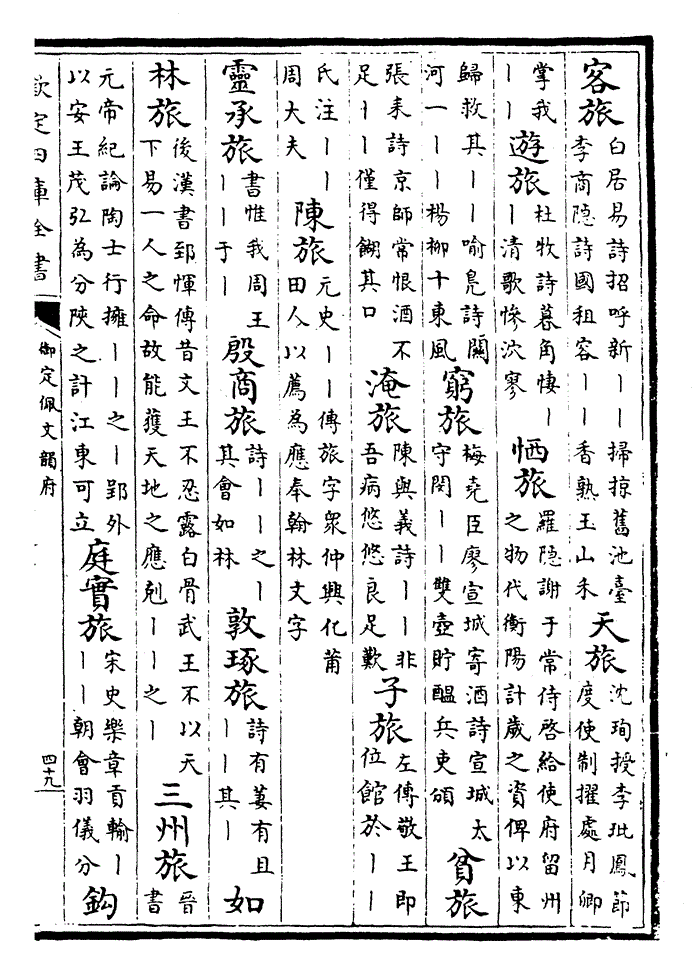 客旅 白居易詩招呼新丨丨掃掠舊池臺 李商隐詩國租容丨丨香熟玉山禾 天旅 沈珣授李玭鳳節 度使制擢處月卿
掌我 丨丨 遊旅 杜牧詩暮角悽丨 丨清歌慘泬寥 恓旅 羅隐謝于常侍啓給使府留州 之物代衡陽計歲之資俾以東
歸救其丨丨喻凫詩關 河一丨丨楊柳十東風 窮旅 梅堯臣廖宣城寄酒詩宣城太 守閔丨丨雙壺貯醞兵吏頒 貧旅
張耒詩京師常恨酒不 足丨丨僅得餬其口 淹旅 陳與義詩丨丨非 吾病悠悠良足歎 子旅 左傳敬王即 位館於丨丨
氏注丨丨 周大夫 陳旅 元史丨丨傳旅字眾仲興化莆 田人以薦為應奉翰林文字
靈承旅 書惟我周王 丨丨于丨 殷商旅 詩丨丨之丨 其會如林 敦琢旅 詩有萋有且 丨丨其丨 如
林旅 後漢書郅惲傳昔文王不忍露白骨武王不以天 下易一人之命故能獲天地之應剋丨丨之丨 三州旅 晉 書
元帝紀論陶士行擁丨丨之丨郢外 以安王茂弘為分陝之計江東可立 庭實旅 宋史樂章貢輸丨 丨丨朝會羽儀分 鈎
欽定四庫全書 御定佩文韻府 四十九